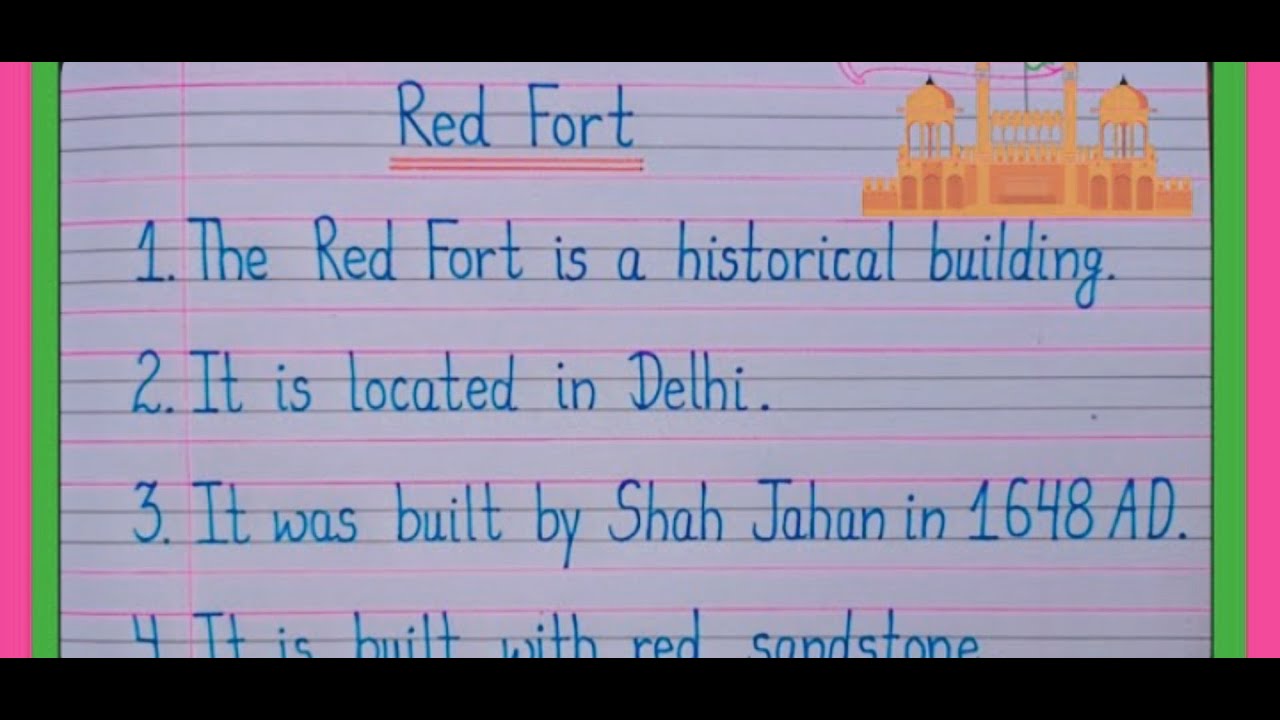 Red Fort
1. The Red Fort is a historical building.
2. It is located in Delhi.
3. It was built by Shah Jahan in 1648 AD.
4. It is built with red sandstone